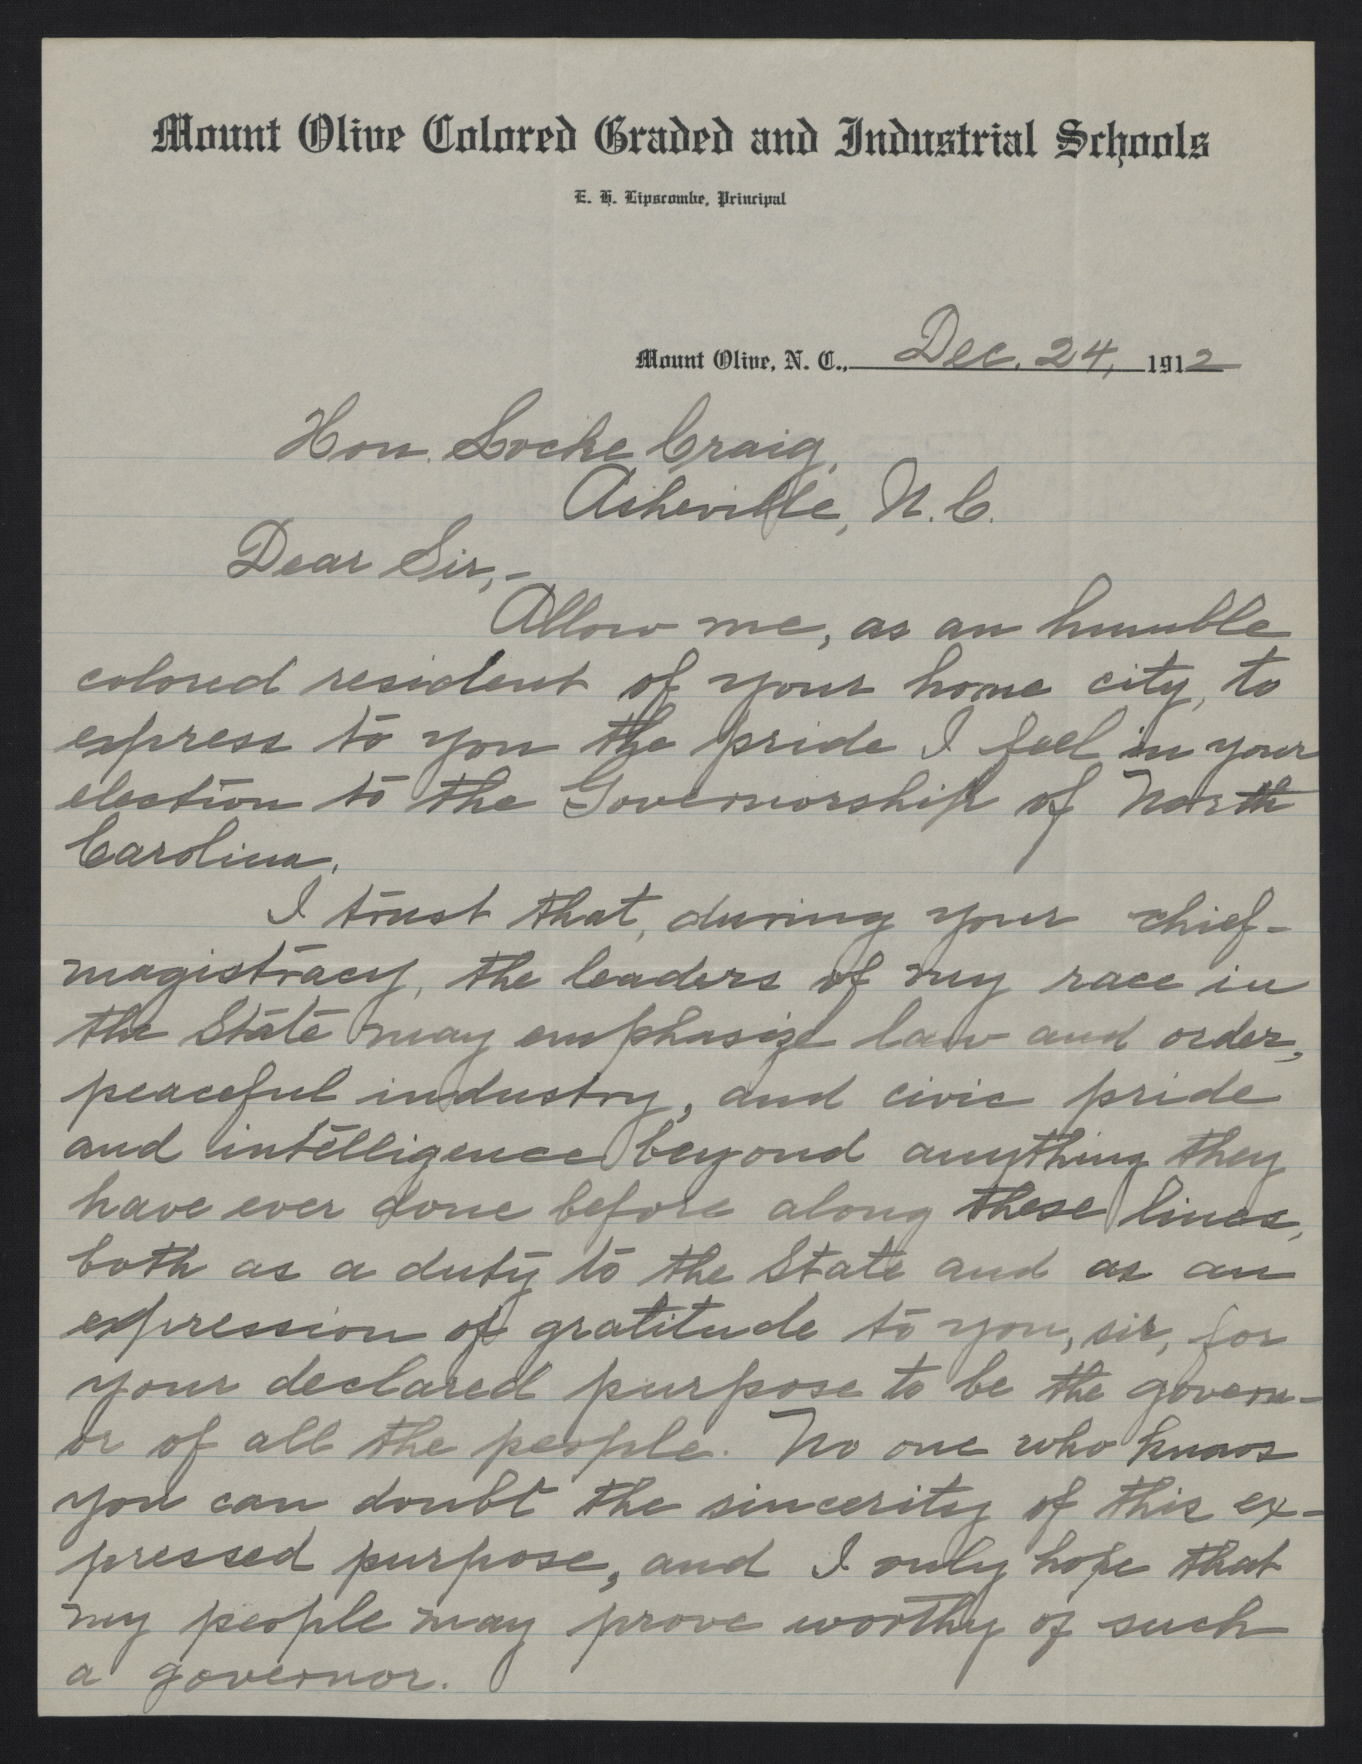 Mount Olive Colored Graded and Industrial Schools
E. H. Lipscombe, Principal
Mount Olive, N. C., Dec. 24, 1912
Hon. Locke Craig,
Asheville, N.C.
Dear Sir,-
Allow me, as an humble
colored resident of your home city, to
express to you the pride I feel in your
election to the Governorship of North
Carolina.
I trust that, during your chief-
magistracy, the leaders of my race in
the State may emphasize law and order,
peaceful industry, and civic pride
and intelligence beyond anything they
have ever done before along these lines,
both as a duty to the State and as an
expression of gratitude to you, sir, for
your declared purpose to be the govern-
or of all the people. No one who knows
you can doubt the sincerity of this ex-
pressed purpose, and I only hope that
my people may prove worthy of such
a governor.